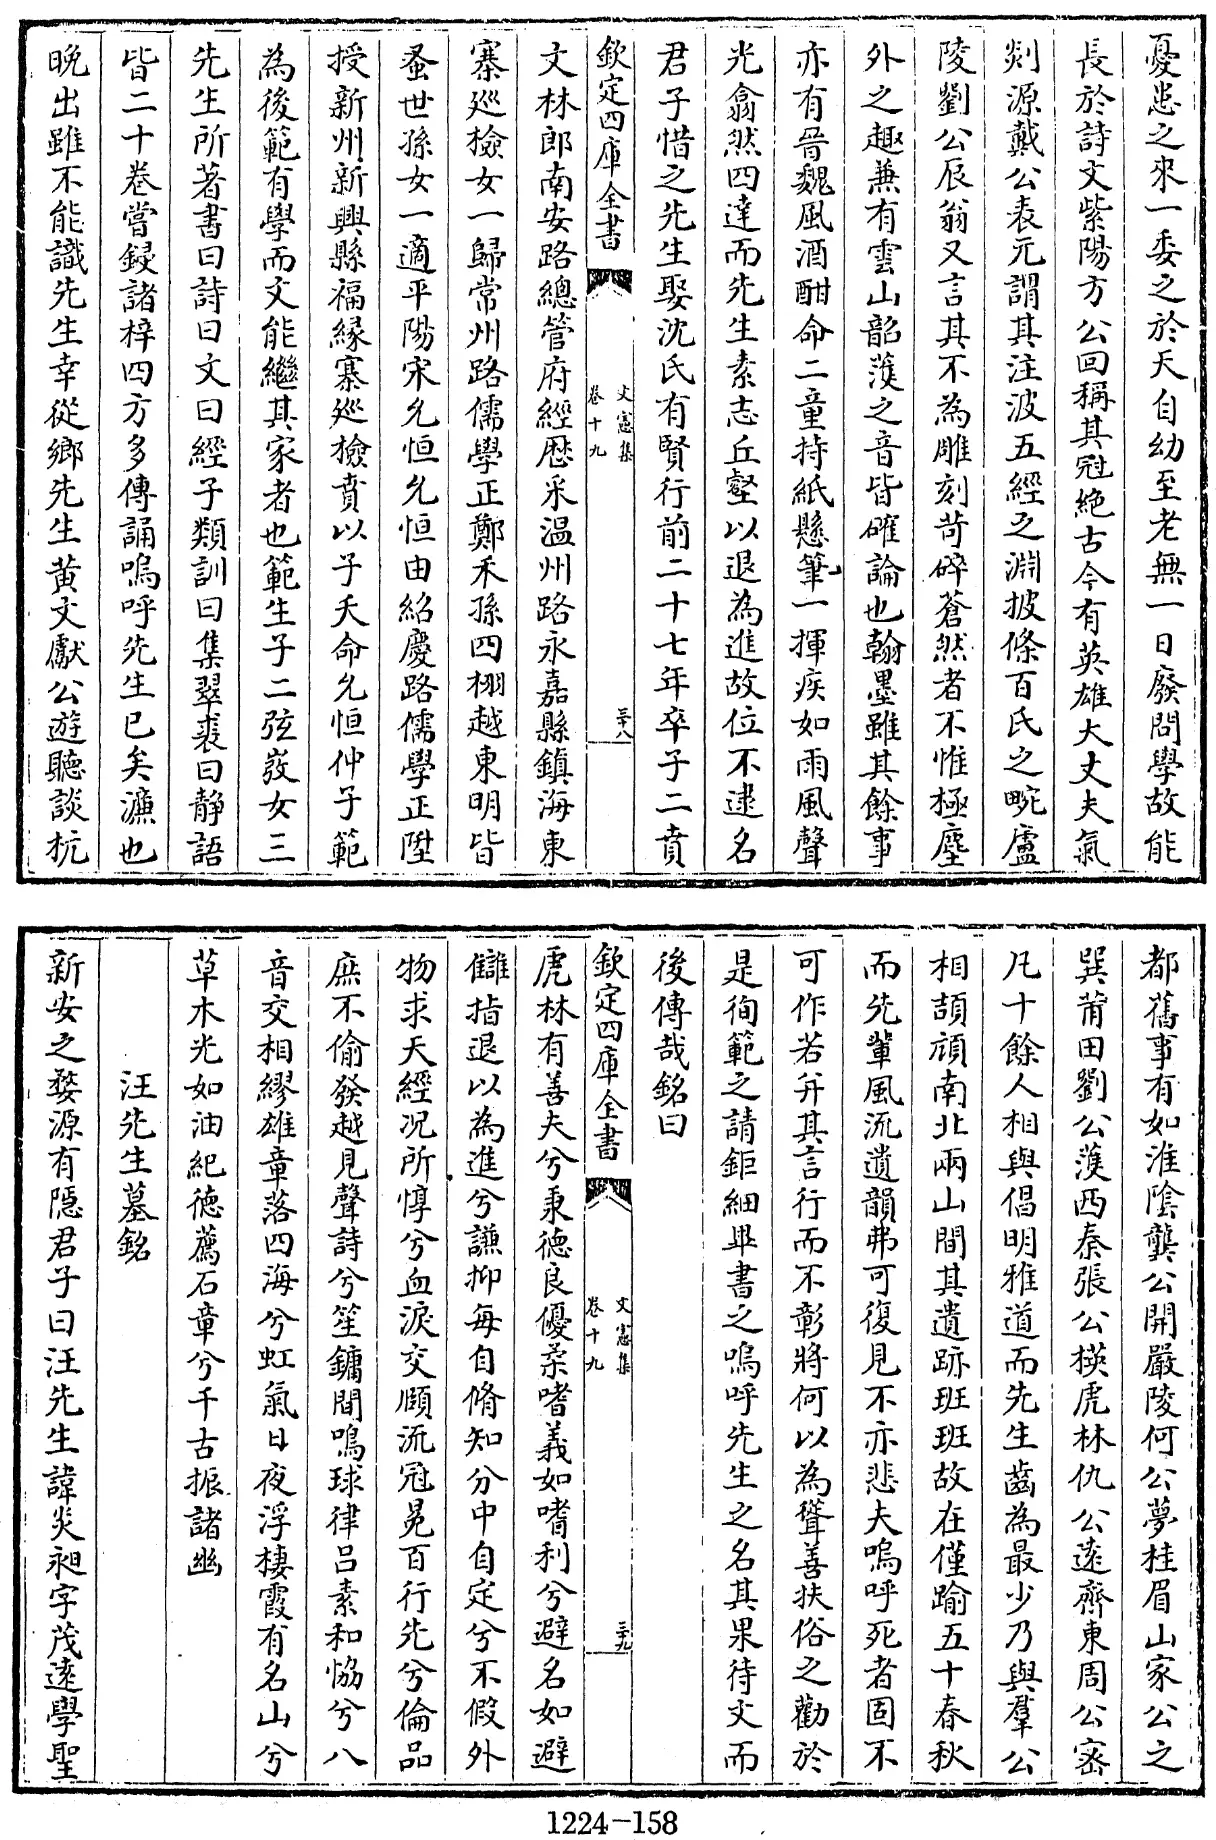 憂患之來一委之於天自幼至老無一日廢問學故能
長於詩文紫陽方公回稱其冠絶古今有英雄大丈夫氣
剡源戴公表元謂其注波五經之淵披條百氏之畹廬
陵劉公辰翁又言其不為雕刻苛碎蒼然者不惟極塵
外之趣兼有雲山韶濩之音皆確論也翰墨雖其餘事
亦有晉魏風酒酣命二童持紙懸筆一揮疾如雨風聲
光翕然四達而先生素志丘壑以退為進故位不逮名
君子惜之先生娶沈氏有賢行前二十七年卒子二賁
欽定四庫全書
文憲集
卷十九
三十八
文林郎南安路總管府經歴采温州路永嘉縣鎮海東
寨廵檢女一歸常州路儒學正鄭禾孫四栩越東明皆
蚤世孫女一適平陽宋允恒允恒由紹慶路儒學正陞
授新州新興縣福縁寨廵檢賁以子夭命允恒仲子範
為後範有學而文能繼其家者也範生子二弦㢸女三
先生所著書曰詩曰文曰經子類訓曰集翠裘曰静語
皆二十卷嘗鋟諸梓四方多傳誦嗚呼先生已矣濂也
晩出雖不能識先生幸從鄉先生黄文獻公遊聽談杭
都舊事有如淮陰龔公開嚴陵何公夢桂眉山家公之
巽莆田劉公濩西秦張公楧虎林仇公逺齊東周公宻
凡十餘人相與倡明雅道而先生齒為最少乃與羣公
相頡頏南北兩山間其遺跡班班故在僅踰五十春秋
而先輩風流遺韻弗可復見不亦悲夫嗚呼死者固不
可作若并其言行而不彰將何以為聳善扶俗之勸於
是徇範之請鉅細畢書之嗚呼先生之名其果待文而
後傳哉銘曰
欽定四庫全書
文憲集
卷十九
三十九
虎林有善夫兮秉徳良優柔嗜義如嗜利兮避名如避
讎指退以為進兮謙抑每自脩知分中自定兮不假外
物求天經况所惇兮血淚交頥流冠冕百行先兮倫品
庶不偷發越見聲詩兮笙鏞間鳴球律吕素和恊兮八
音交相繆雄章落四海兮虹氣日夜浮棲霞有名山兮
草木光如油紀徳薦石章兮千古振諸幽
汪先生墓銘
新安之婺源有隠君子曰汪先生諱炎昶字茂逺學聖
1224-158